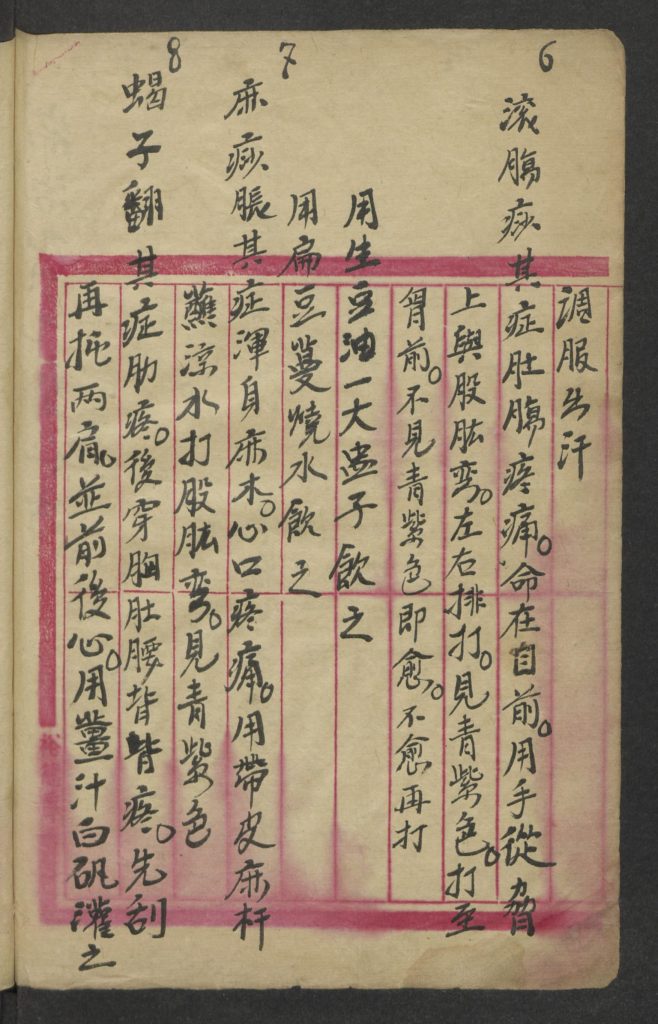 調服出汗
6
滚腸痧其症肚腸疼痛。命在目前。用手從脅
上與股肱弯。左右排打。見青紫色。打至
胷前。不見青紫色即愈。不愈再打
用生豆油一大盅子飲之
用扁豆蔓燒水飲之
7
麻痧脹其症渾身麻木。心口疼痛。用帶皮麻杆
蘸涼水打股肱弯。見青紫色
8
蝎子翻其症肋疼。後穿胸肚腰背皆疼。先刮
再㧣两肩。並前後心。用薑汁白矾灌之